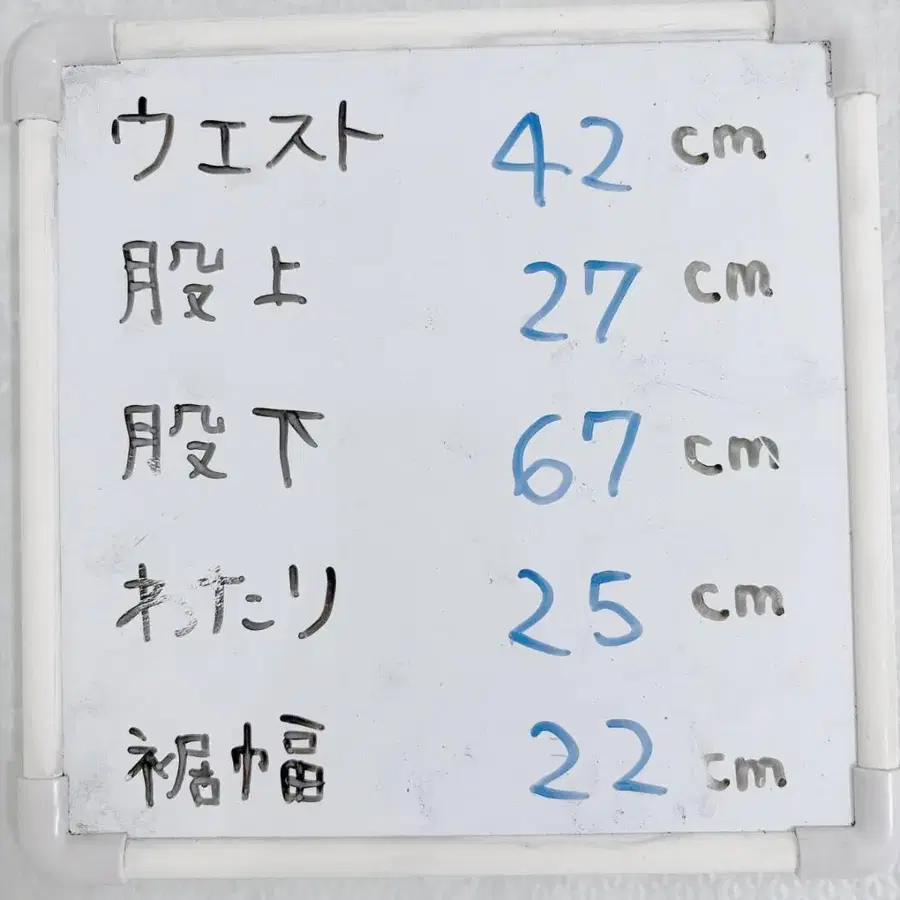 ウエスト 42 cm
股上 27 cm
股下 67 cm
わたり 25 cm
裾幅 22 cm